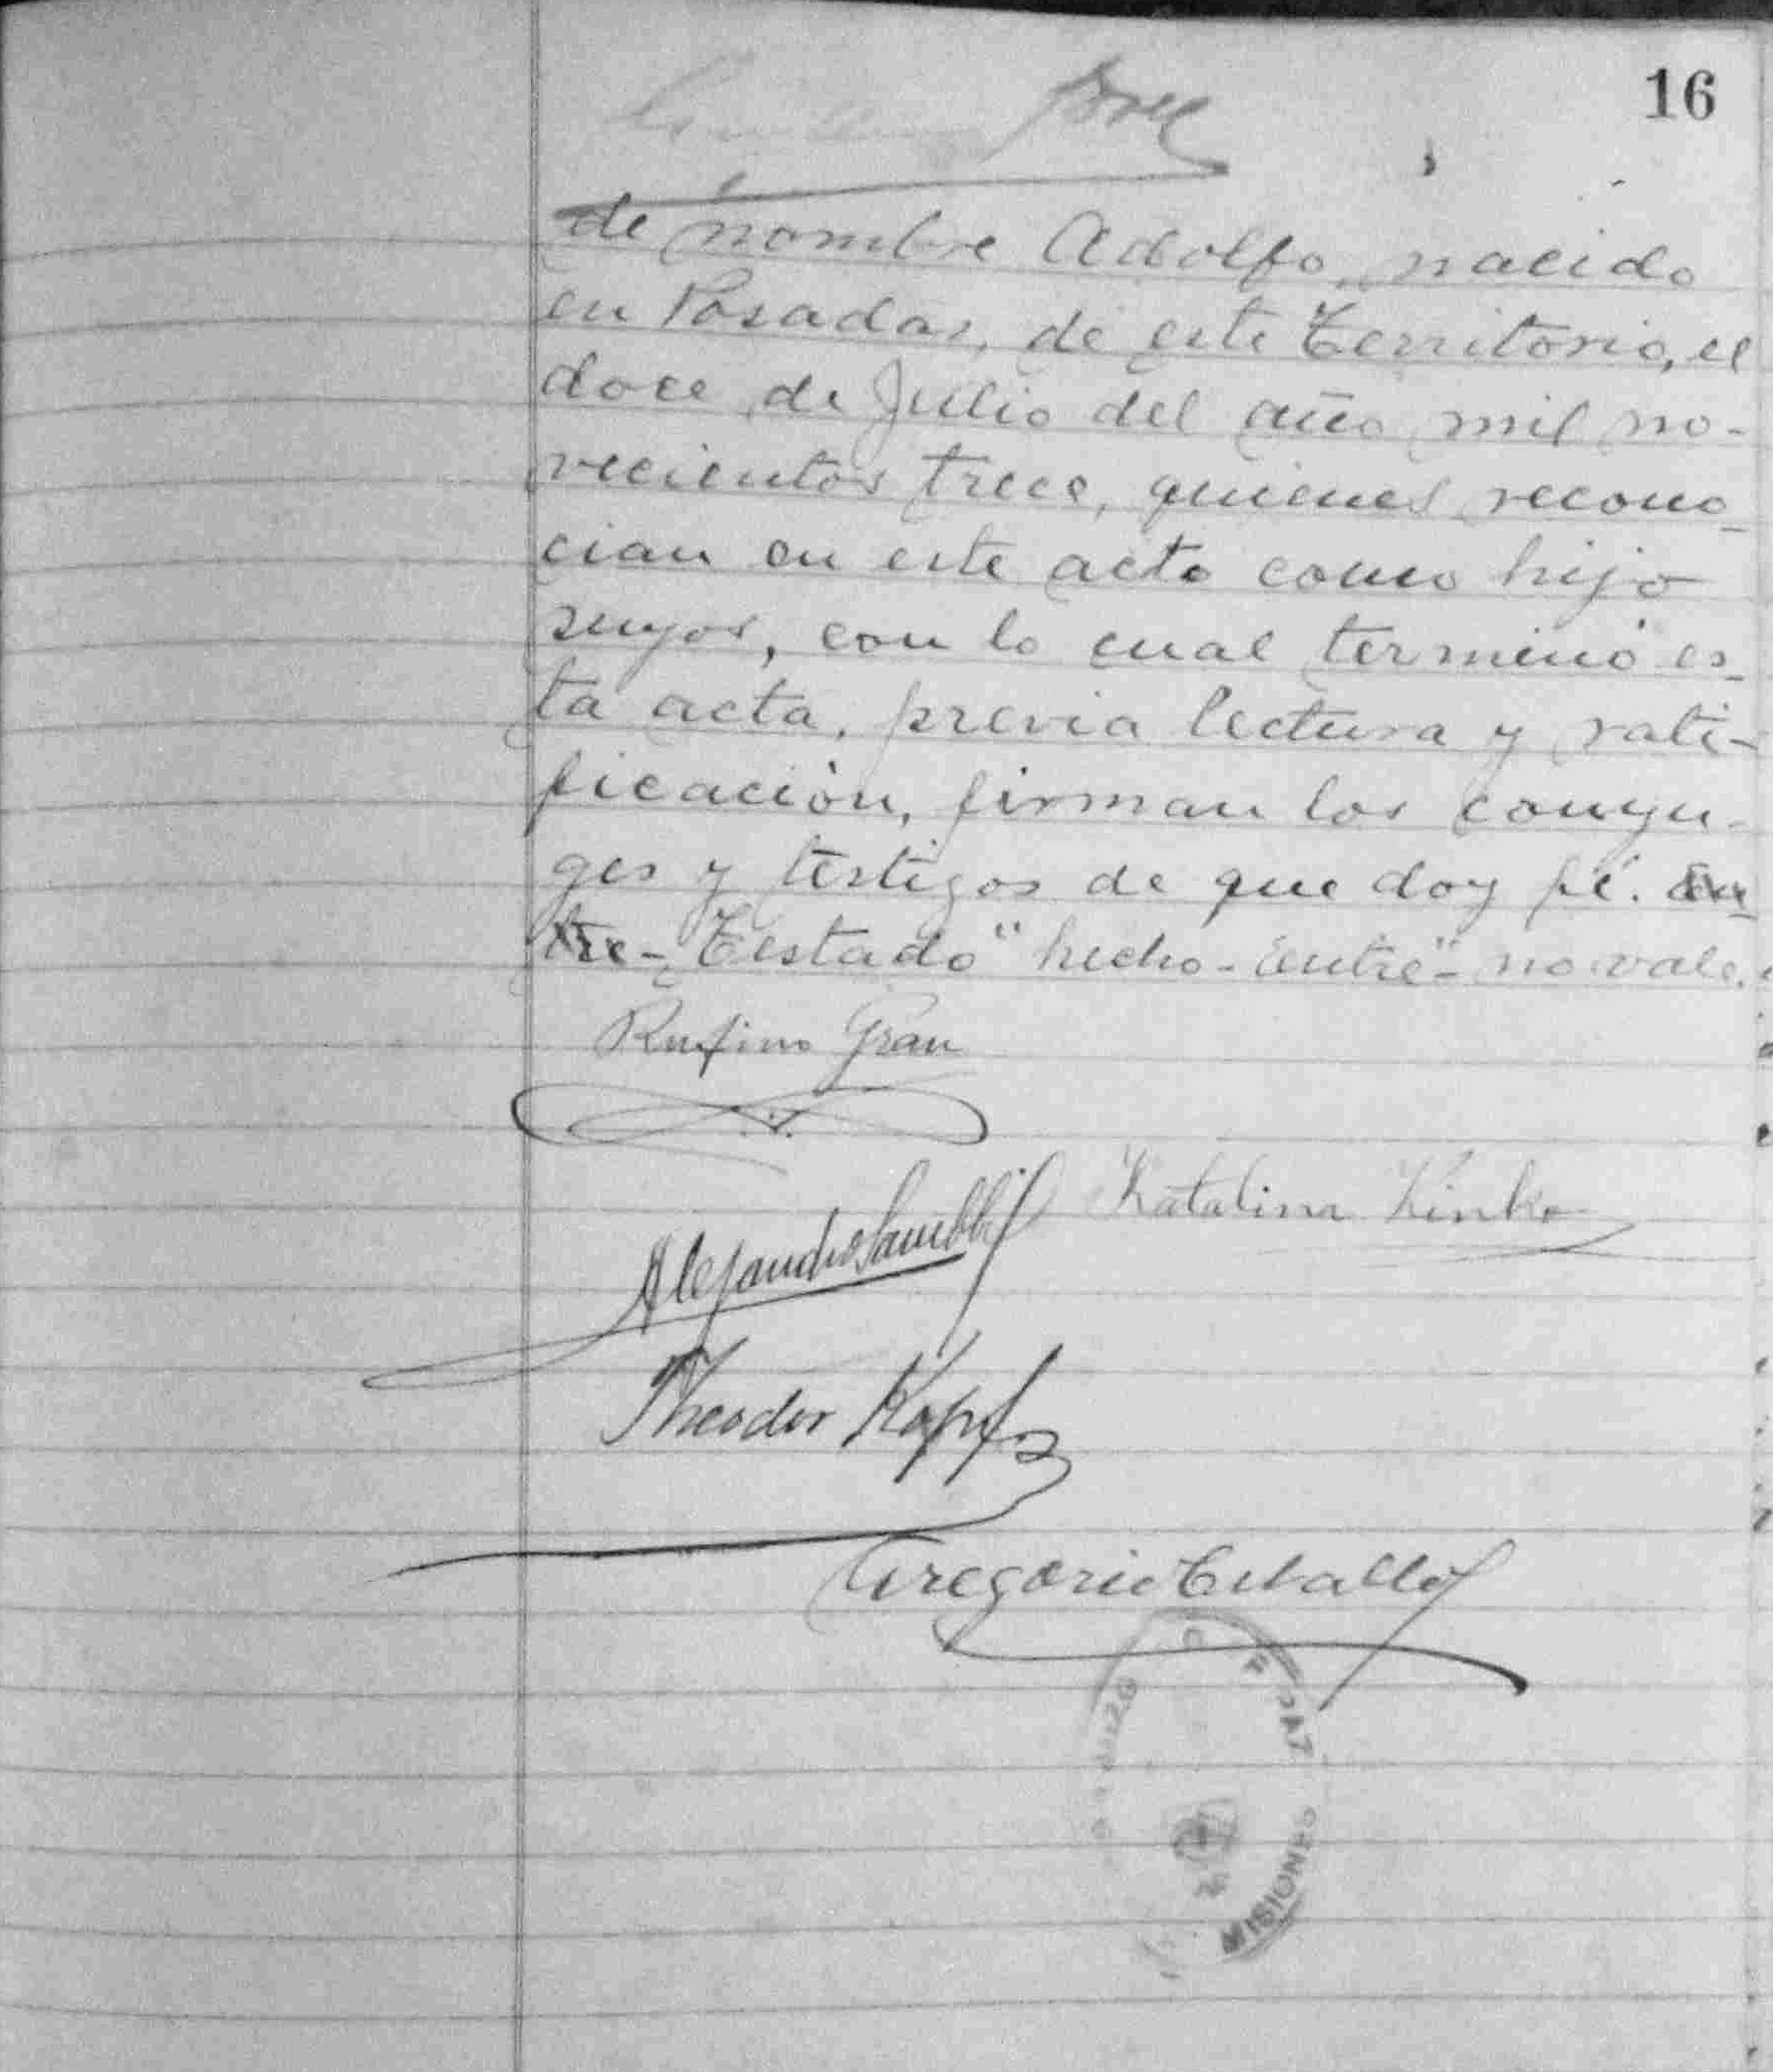 16
de nombre Adolfo, nacido
en Posadas, de este Territorio, el
doce de Julio del año mil no-
vecientos trece, quienes recono-
cian en este acto como hijo
suyos, con lo cual terminó es-
ta acta, previa lectura y rati-
ficación, firman los conyu-
ges y testigos de que doy fé. En-
tre-Testado "hecho-entre"- no vale.
Rufino Grau
Katalina Kinko
Alejandro
Theodor Kopf
Gregorio Ceballos
MISIONES